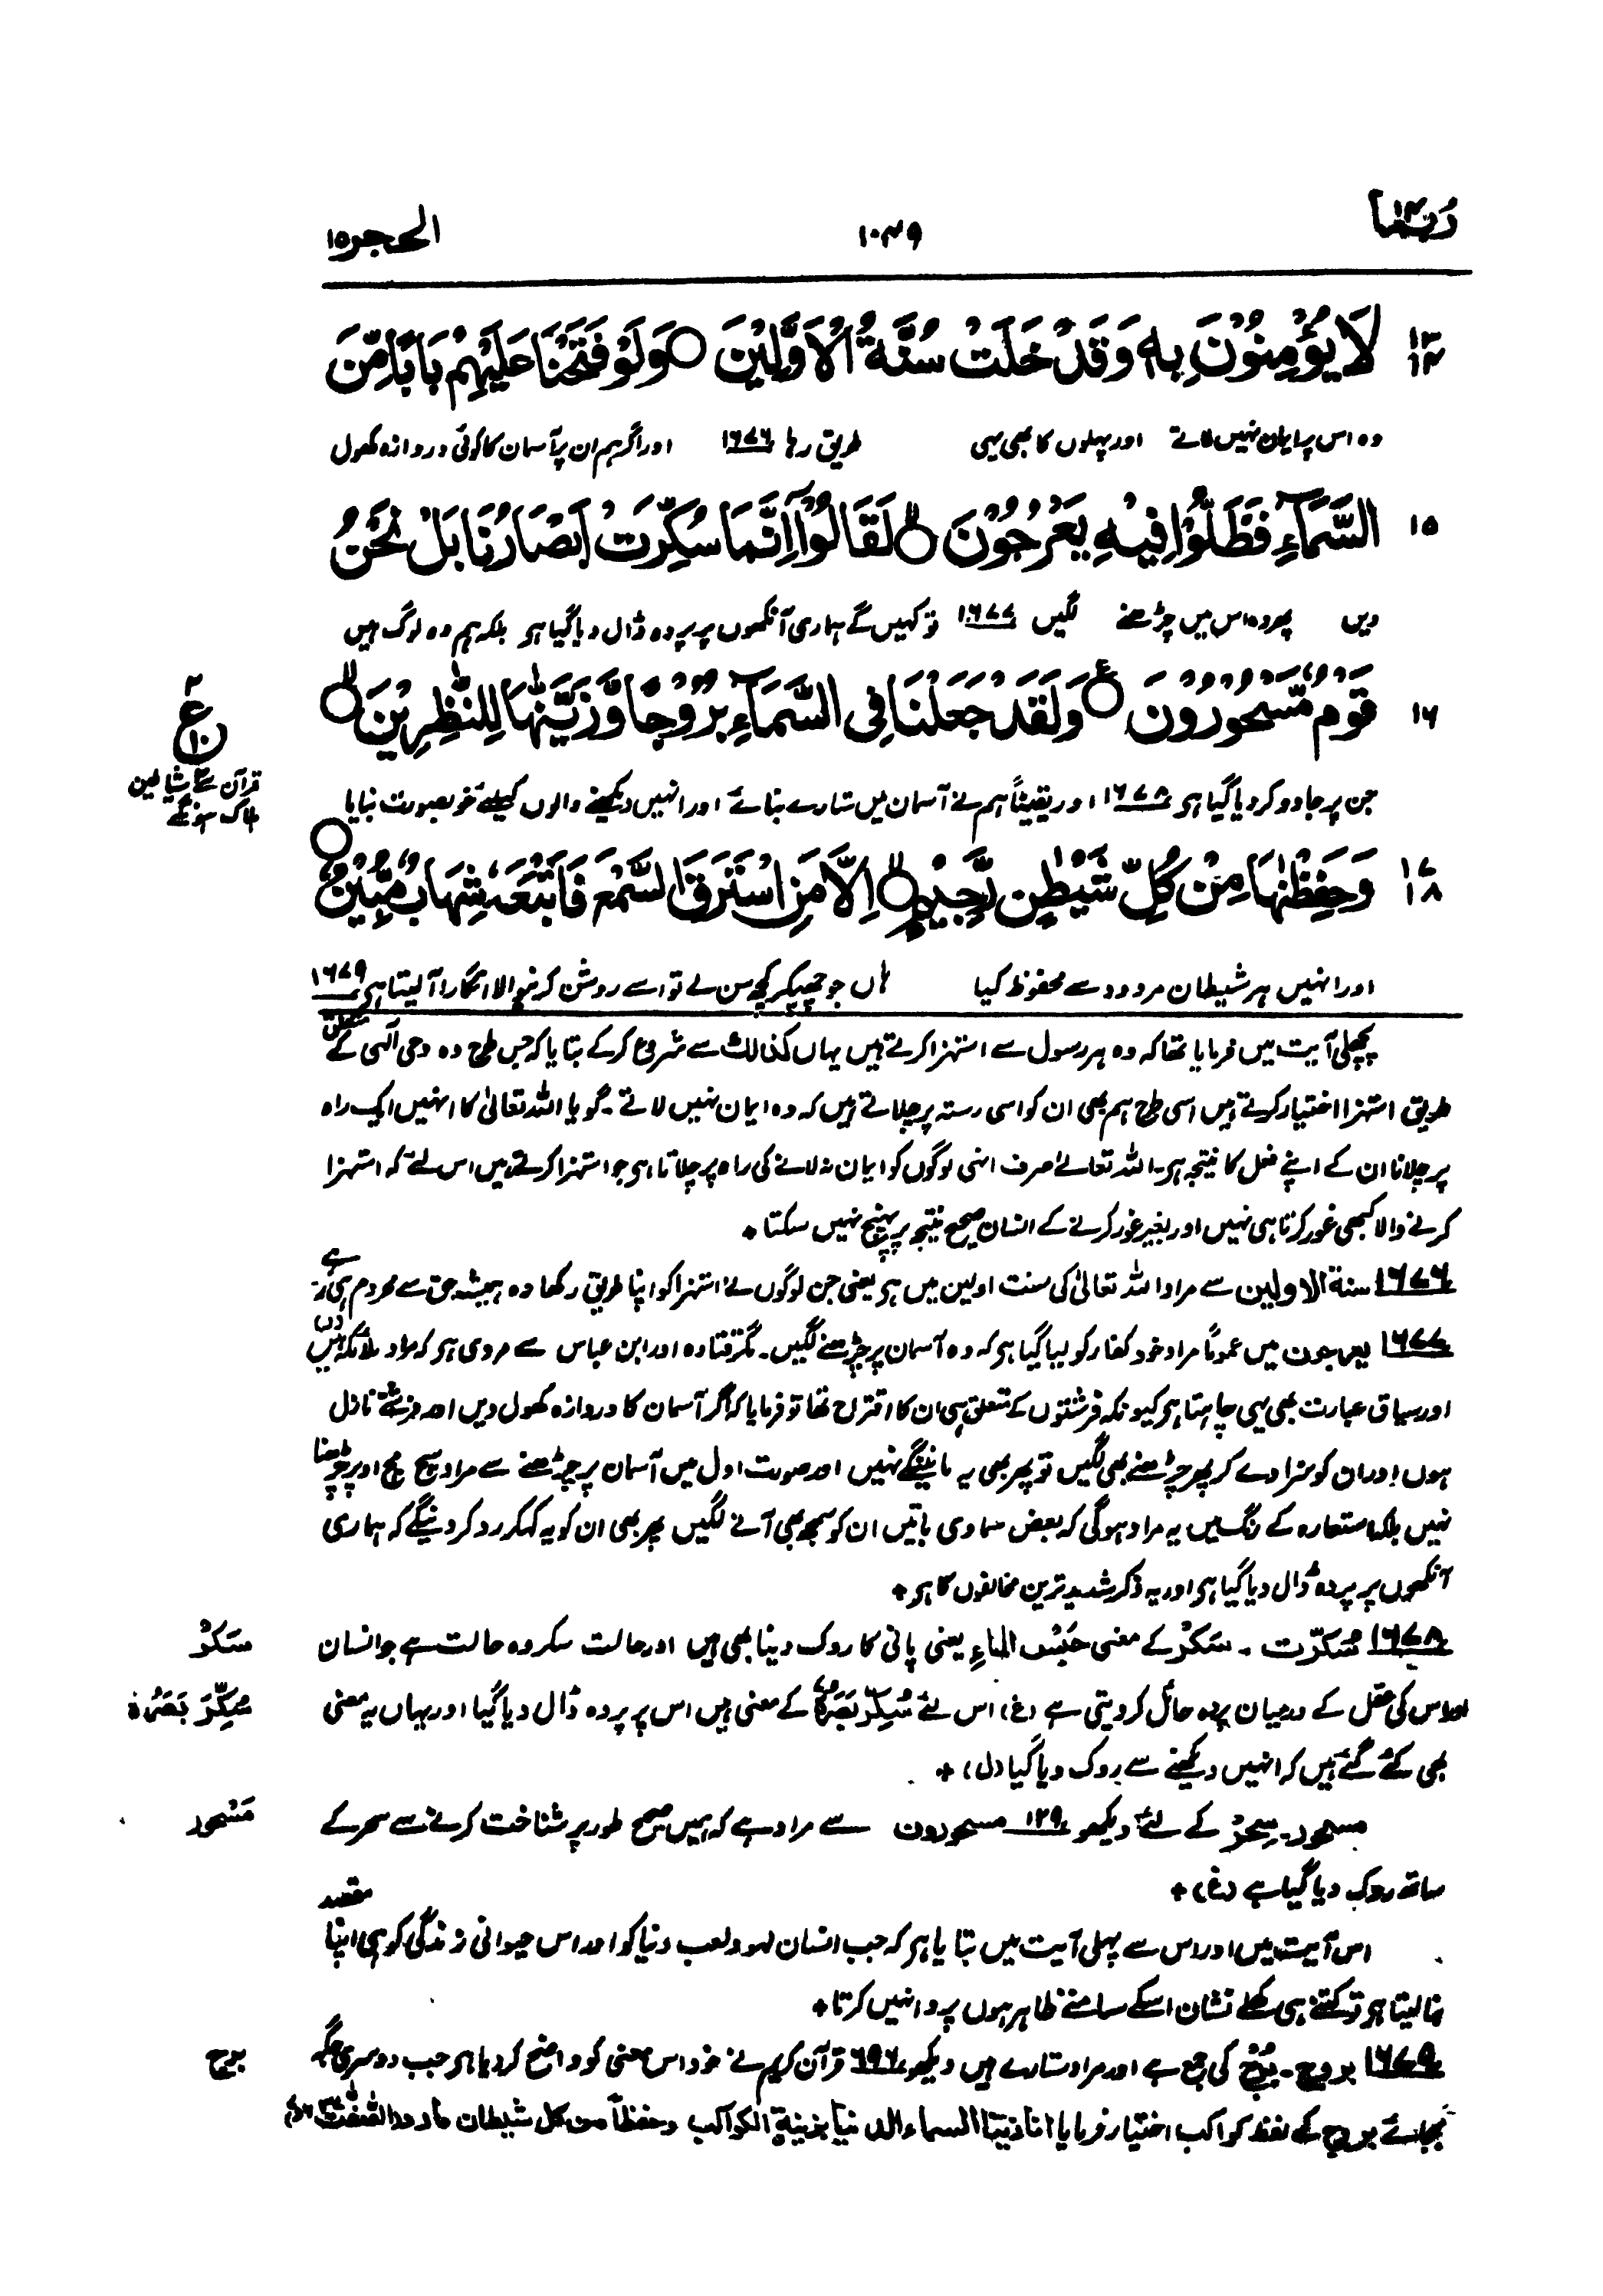 ربما ۱۴
۱۰۴۹
الحجر ۱۵
۱۳ ۱۴ لَا يُؤْمِنُوْنَ بِهٖ وَقَدْ خَلَتْ سُنَّةُ الْاَوَّلِيْنَ ○ وَلَوْ فَتَحْنَا عَلَيْهِمْ بَابًا مِّنَ
وہ اس پر ایمان نہیں لاتے اور پہلوں کا بھی یہی طریق رہا ۱۶۷۶ اور اگر ہم ان پر آسمان کا کوئی دروازہ کھول
۱۵ السَّمَآءِ فَظَلُّوْا فِيْهِ يَعْرُجُوْنَ ○ لَقَالُوْٓا اِنَّمَا سُكِّرَتْ اَبْصَارُنَا بَلْ نَحْنُ
دیں پھر وہ اس میں چڑھنے لگیں ۱۶۷۷ تو کہیں گے ہماری آنکھوں پر پردہ ڈال دیا گیا ہر بلکہ ہم وہ لوگ ہیں
۱۶ قَوْمٌ مَّسْحُوْرُوْنَ ○ وَلَقَدْ جَعَلْنَا فِى السَّمَآءِ بُرُوْجًا وَّزَيَّنّٰهَا لِلنّٰظِرِيْنَ ○
ع ۲ ۱۰
قرآن سے شیاطین
ہلاک ہونگے
جن پر جادو کر دیا گیا ہر ۱۶۷۸ اور یقیناً ہم نے آسمان میں ستارے بنائے اور انہیں دیکھنے والوں کیلئے خوبصورت بنایا
۱۷ ۱۸ وَحَفِظْنٰهَا مِنْ كُلِّ شَيْطٰنٍ رَّجِيْمٍ ○ اِلَّا مَنِ اسْتَرَقَ السَّمْعَ فَاَتْبَعَهٗ شِهَابٌ مُّبِيْنٌ ○
اور انہیں ہر شیطان مردود سے محفوظ کیا ہاں جو چھپکر کچھ سن لے تو اسے روشن کرنیوالا انگارا آ لیتا ہر ۱۶۷۹
پچھلی آیت میں فرمایا تھا کہ وہ ہر رسول سے استہزا کرتے ہیں یہاں کذالک سے شروع کرکے بتایا کہ جس طرح وہ وحی الٰہی کے متعلق
طریق استہزا اختیار کرتے ہیں اسی طرح ہم بھی ان کو اسی رستہ پر چلاتے ہیں کہ وہ ایمان نہیں لاتے۔ گویا اللہ تعالیٰ کا انہیں ایک راہ
پر چلانا ان کے اپنے فعل کا نتیجہ ہر۔ اللہ تعالےٰ صرف انہی لوگوں کو ایمان نہ لانے کی راہ پر چلاتا ہر جو استہزا کرتے ہیں اس لئے کہ استہزا
کرنے والا کبھی غور کرتا ہی نہیں اور بغیر غور کرنے کے انسان صحیح نتیجہ پر پہنچ نہیں سکتا ٭
۱۶۷۶ سنة الاولین سے مراد اللہ تعالیٰ کی سنت اولین میں ہر یعنی جن لوگوں نے استہزا کو اپنا طریق رکھا وہ ہمیشہ حق سے محروم ہی رہے
۱۶۷۷ یعرجون میں عموماً مراد خود کفار کو لیا گیا ہر کہ وہ آسمان پر چڑھنے لگیں۔ مگر قتادہ اور ابن عباس سے مروی ہر کہ مراد ملائکہ ہیں (د)
اور سیاق عبارت بھی یہی چاہتا ہر کیونکہ فرشتوں کے متعلق ہی ان کا اقتراح تھا تو فرمایا کہ اگر آسمان کا دروازہ کھول دیں اور فرشتے نازل
ہوں اور ان کو سزا دے کر پھر چڑھنے بھی لگیں تو پھر بھی یہ مانینگے نہیں اور صورت اول میں آسمان پر چڑھنے سے مراد سچ مچ اوپر چڑھنا
نہیں بلکہ استعارہ کے رنگ میں یہ مراد ہوگی کہ بعض سماوی باتیں ان کو سمجھ بھی آنے لگیں پھر بھی ان کو یہ کہکر رد کر دینگے کہ ہماری
آنکھوں پر پردہ ڈال دیا گیا ہر اور یہ ذکر شدید ترین مخالفوں کا ہر ٭
سَکْرٌ
۱۶۷۸ سُکّرت۔ سَکْرٌ کے معنی حَبْسُ الماءِ یعنی پانی کا روک دینا بھی ہیں اور حالت سکر وہ حالت ہے جو انسان
سُکِّرَ بَصَرُہٗ
اور اس کی عقل کے درمیان پردہ حائل کر دیتی ہے (غ) اس لئے سُکِّرَ بَصَرُہٗ کے معنی ہیں اس پر پردہ ڈال دیا گیا اور یہاں یہ معنی
بھی کئے گئے ہیں کہ انہیں دیکھنے سے روک دیا گیا (ل) ٭
مَسْحُور
مسحور۔ سِحْرٌ کے لئے دیکھو ۱۲۹ مسحورون سے مراد ہے کہ ہمیں صحیح طور پر شناخت کرنے سے سحر کے
ساتھ روک دیا گیا ہے (غ) ٭
اس آیت میں اور اس سے پہلی آیت میں بتایا ہر کہ جب انسان لہو و لعب دنیا کو اور اس حیوانی زندگی کو ہی اپنا مقصد
بنا لیتا ہر تو کتنے ہی کھلے نشان اسکے سامنے ظاہر ہوں پروا نہیں کرتا ٭
برج
۱۶۷۹ بروج۔ بُرْج کی جمع ہے اور مراد ستارے ہیں دیکھو ۶۹۶ قرآن کریم نے خود اس معنی کو واضح کر دیا ہر جب دوسری جگہ
بجائے بروج کے لفظ کواکب اختیار فرمایا انا زینا السماء الدنیا بزینة الکواکب وحفظاً من کل شیطان مارد (الصّٰفّٰت